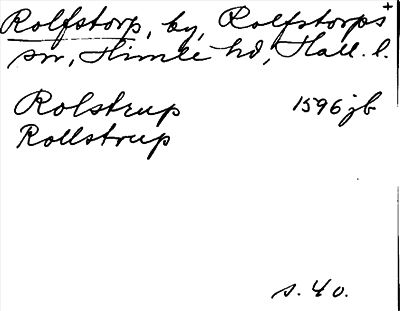 Rolfstorp, by, Rolfstorps +
sn, Himle hd, Hall. l.
Rolstrup 1596 jb
Rollstrup
s. 40.